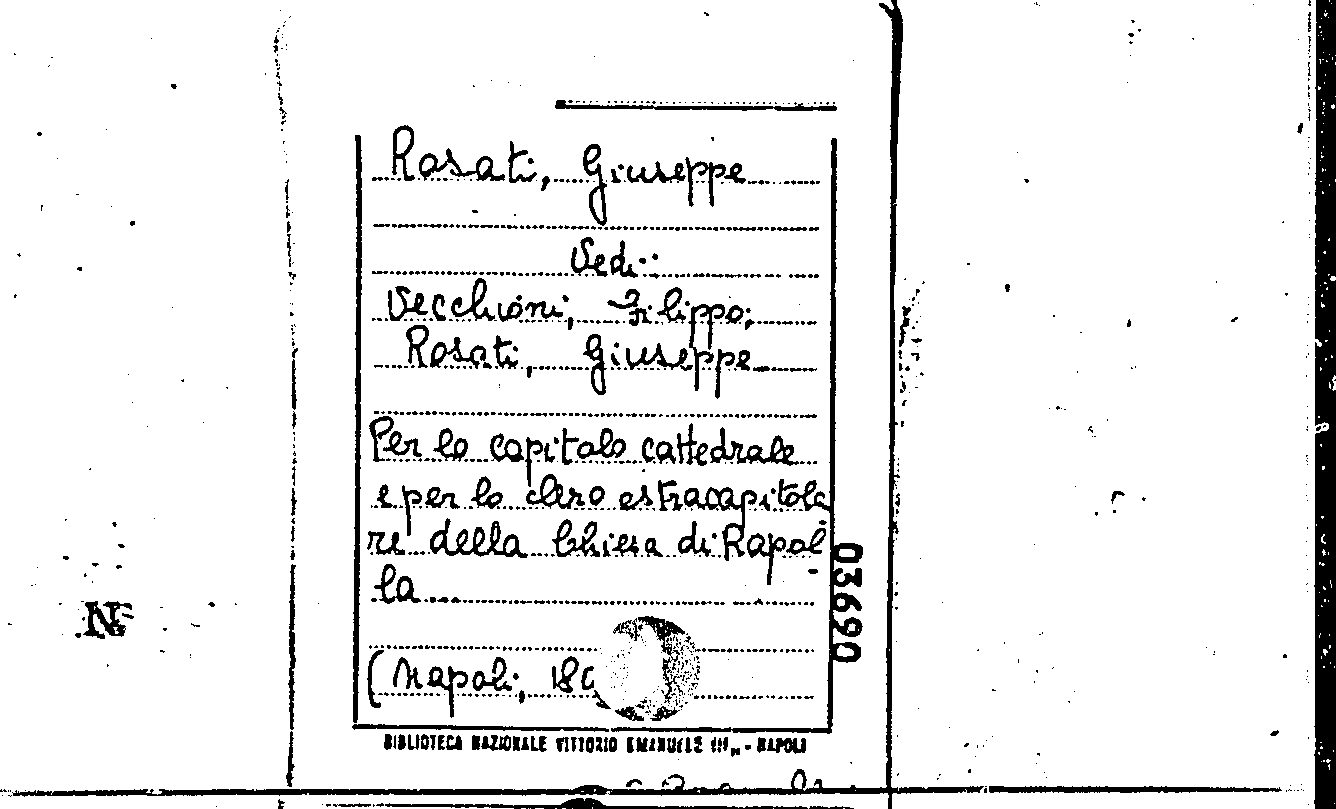 Rosati, Giuseppe
Vedi:
Vecchioni, Filippo;
Rosati, Giuseppe
Per lo capitolo cattedrale
e per lo clero estracapitola
re della Chiesa di Rapol
la...
(Napoli,
03690
BIBLIOTECA NAZIONALE VITTORIO EMANUELE III - NAPOLI
N